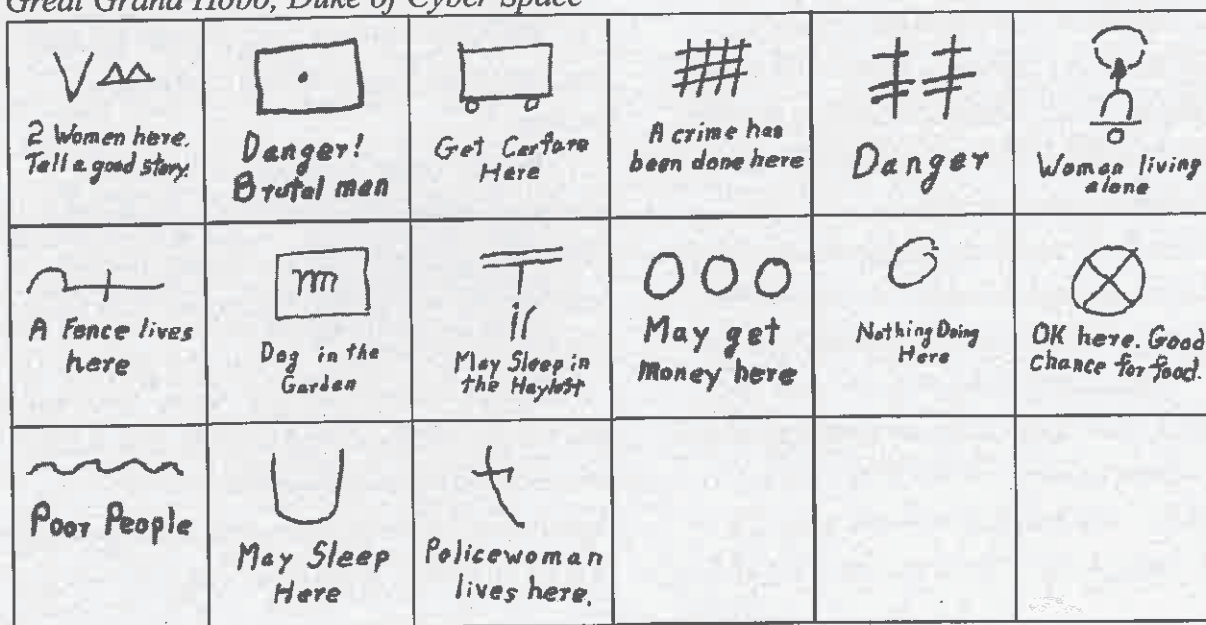 Great Grand Hobo, Duke of Cyber Space
2 Women here.
Tell a good story.
Danger!
Brutal man
Get Carfare
Here
A crime has
been done here
Danger
Woman living
alone
A Fence lives
here
Dog in the
Garden
May Sleep in
the Hayloft
May get
money here
Nothing Doing
Here
OK here. Good
Chance for food.
Poor People
May Sleep
Here
Policewoman
lives here.